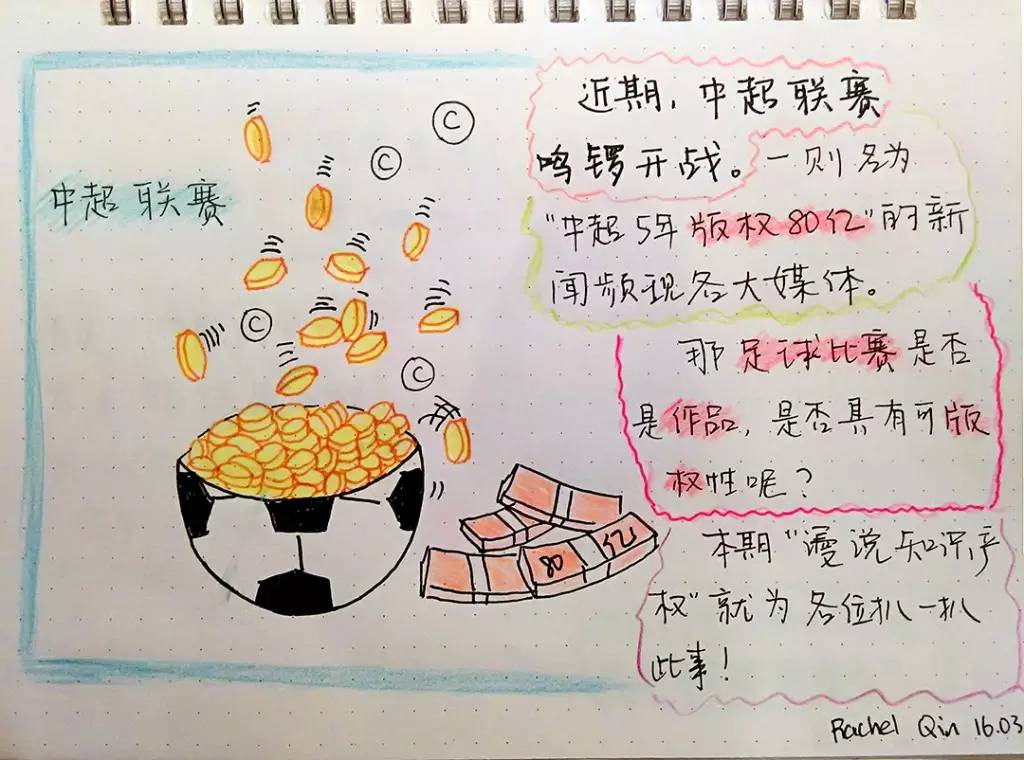 中超联赛
©
©
©
©
80亿
近期，中超联赛
鸣锣开战。一则名为
"中超5年版权80亿"的新
闻频现各大媒体。
那足球比赛是否
是作品，是否具有可版
权性呢？
本期"漫说知识产
权"就为各位扒一扒
此事！
Rachel Qin 16.03